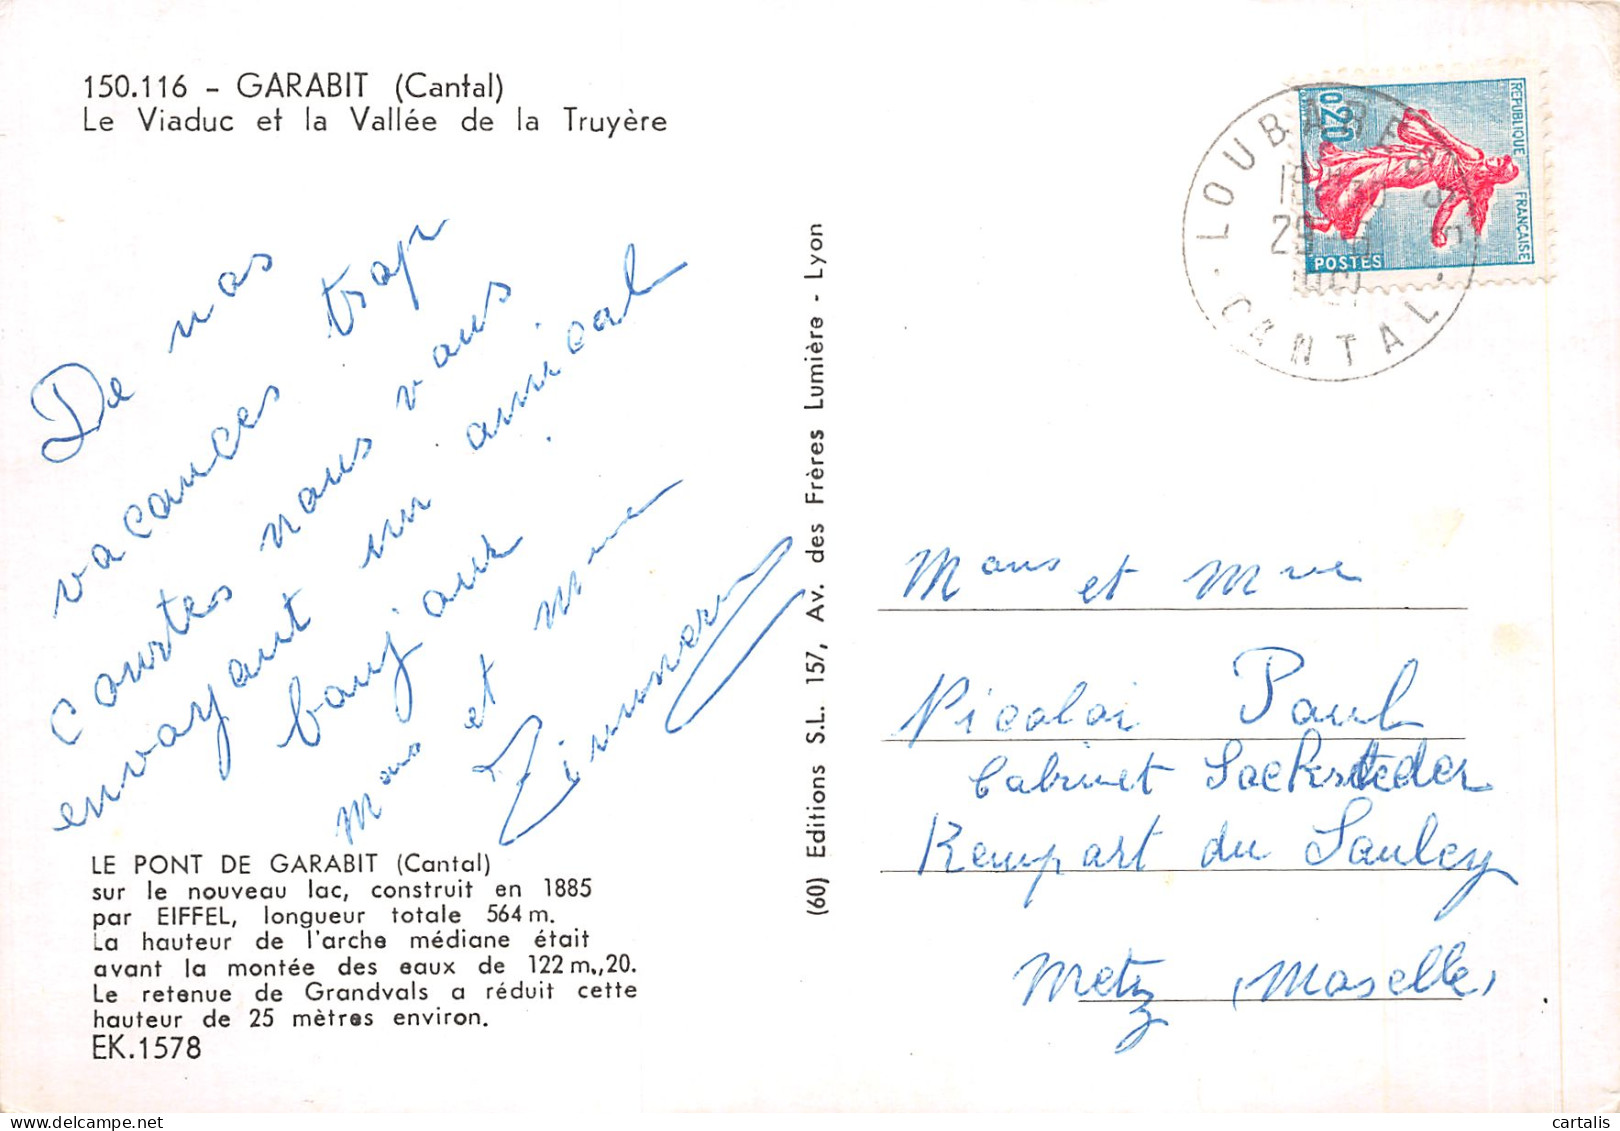 150.116 - GARABIT (Cantal)
Le Viaduc et la Vallée de la Truyère
De nos
vacances trop
courtes nous vous
envoyant un amical
bonjour
Mons et Mme
Zimmer
LE PONT DE GARABIT (Cantal)
sur le nouveau lac, construit en 1885
par EIFFEL, longueur totale 564 m.
La hauteur de l'arche médiane était
avant la montée des eaux de 122 m.,20.
Le retenue de Grandvals a réduit cette
hauteur de 25 mètres environ.
EK.1578
(60) Editions S.L. 157, Av. des Frères Lumière - Lyon
REPUBLIQUE FRANÇAISE
0,20
POSTES
LOUBARESSE
CANTAL
29
Mons et Mme
Nicolai Paul
Cabinet Sacksteder
Rempart du Saulcy
Metz (Moselle)
cartalis